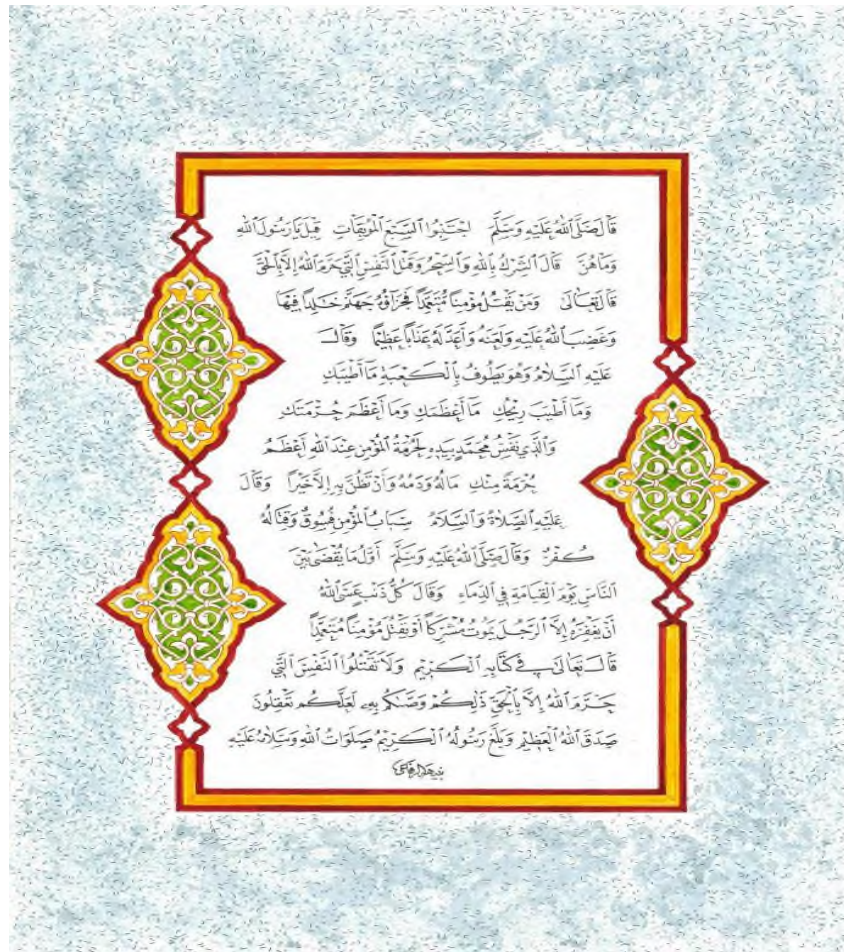 قَالَ صَلَّى اللهُ عَلَيْهِ وَسَلَّمَ اجْتَنِبُوا السَّبْعَ الْمُوبِقَاتِ قِيلَ يَا رَسُولَ اللهِ
وَمَا هُنَّ قَالَ الشِّرْكُ بِاللهِ وَالسِّحْرُ وَقَتْلُ النَّفْسِ الَّتِي حَرَّمَ اللهُ إِلَّا بِالْحَقِّ
قَالَ تَعَالَى وَمَنْ يَقْتُلْ مُؤْمِنًا مُتَعَمِّدًا فَجَزَاؤُهُ جَهَنَّمُ خَالِدًا فِيهَا
وَغَضِبَ اللهُ عَلَيْهِ وَلَعَنَهُ وَأَعَدَّ لَهُ عَذَابًا عَظِيمًا وَقَالَ
عَلَيْهِ السَّلَامُ وَهُوَ يَطُوفُ بِالْكَعْبَةِ مَا أَطْيَبَكِ
وَمَا أَطْيَبَ رِيحَكِ مَا أَعْظَمَكِ وَمَا أَعْظَمَ حُرْمَتَكِ
وَالَّذِي نَفْسُ مُحَمَّدٍ بِيَدِهِ لَحُرْمَةُ الْمُؤْمِنِ عِنْدَ اللهِ أَعْظَمُ
حُرْمَةً مِنْكِ مَالُهُ وَدَمُهُ وَأَنْ تَظُنَّ بِهِ إِلَّا خَيْرًا وَقَالَ
عَلَيْهِ الصَّلَاةُ وَالسَّلَامُ سِبَابُ الْمُؤْمِنِ فُسُوقٌ وَقِتَالُهُ
كُفْرٌ وَقَالَ صَلَّى اللهُ عَلَيْهِ وَسَلَّمَ أَوَّلُ مَا يُقْضَى بَيْنَ
النَّاسِ يَوْمَ الْقِيَامَةِ فِي الدِّمَاءِ وَقَالَ كُلُّ ذَنْبٍ عَسَى اللهُ
أَنْ يَغْفِرَهُ إِلَّا الرَّجُلَ يَمُوتُ مُشْرِكًا أَوْ يَقْتُلُ مُؤْمِنًا مُتَعَمِّدًا
قَالَ تَعَالَى فِي كِتَابِهِ الْكَرِيمِ وَلَا تَقْتُلُوا النَّفْسَ الَّتِي
حَرَّمَ اللهُ إِلَّا بِالْحَقِّ ذَلِكُمْ وَصَّاكُمْ بِهِ لَعَلَّكُمْ تَعْقِلُونَ
صَدَقَ اللهُ الْعَظِيمُ وَبَلَّغَ رَسُولُهُ الْكَرِيمُ صَلَوَاتُ اللهِ وَسَلَامُهُ عَلَيْهِ